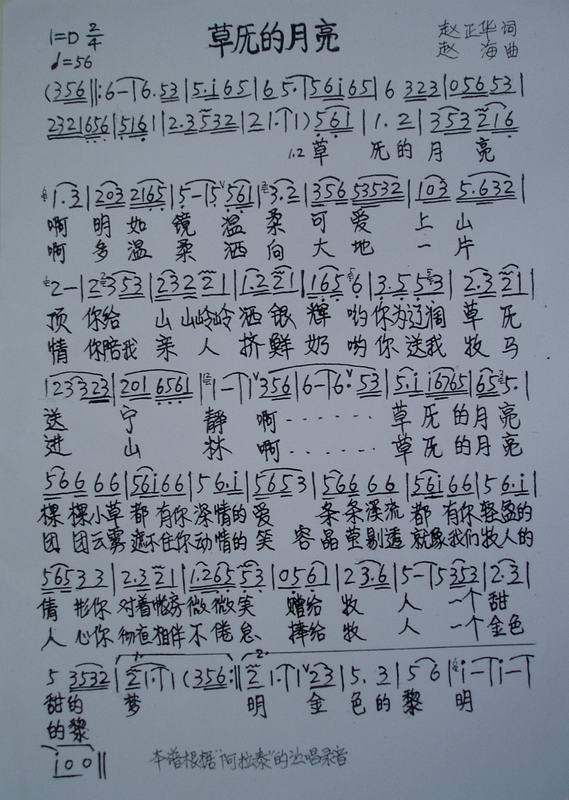 草厡的月亮
1=D 2/4
♩=56
赵正华 词
赵 海 曲
(356‖:6—|6.53|5.i65|65.|56i65|6 323|05653|
232656|5161|2.3532|21.|1)561|1.2|353216|
1.2 草 厡的月 亮
1.3|2032165|5—|5561|3.2|35653532|103 5.632|
啊 明如 镜 温 柔 可 爱 上 山
啊 多温 柔 洒 向 大 地 一 片
2—|2353|232 21|1.221|1656|3.553|2.321|
顶 你给 山山岭岭 洒银 辉 哟你为辽阔 草 厡
情 你陪我 亲 人 挤鲜 奶 哟你送我 牧 马
123323|2016561|1—|1356|6—|6.53|5.ii6765|655.|
送 宁 静 啊······ 草厡 的月亮
进 山 林 啊······ 草厡 的月亮
5666 6|56i66|56.i|5653|5666 6|56i66|56.i|
棵棵小草 都 有你深情的 爱 条条溪流 都 有你轻盈的
团团云雾 遮不住你动情的 笑 容 晶莹剔透 就象我们牧人的
56533|2.321|1.26553|0561|23.6|5—|5353|2.3|
倩 影你 对着帐房微微笑 赠给 牧 人 一个 甜
人 心你 彻夜相伴不倦怠 捧给 牧 人 一个金色
5 3532|21.|1(356:‖21.|123|5.3|56|i—|i—|
甜的 梦 明 金 色的黎 明
的黎
i00‖
本谱根据“阿拉泰”的演唱录音